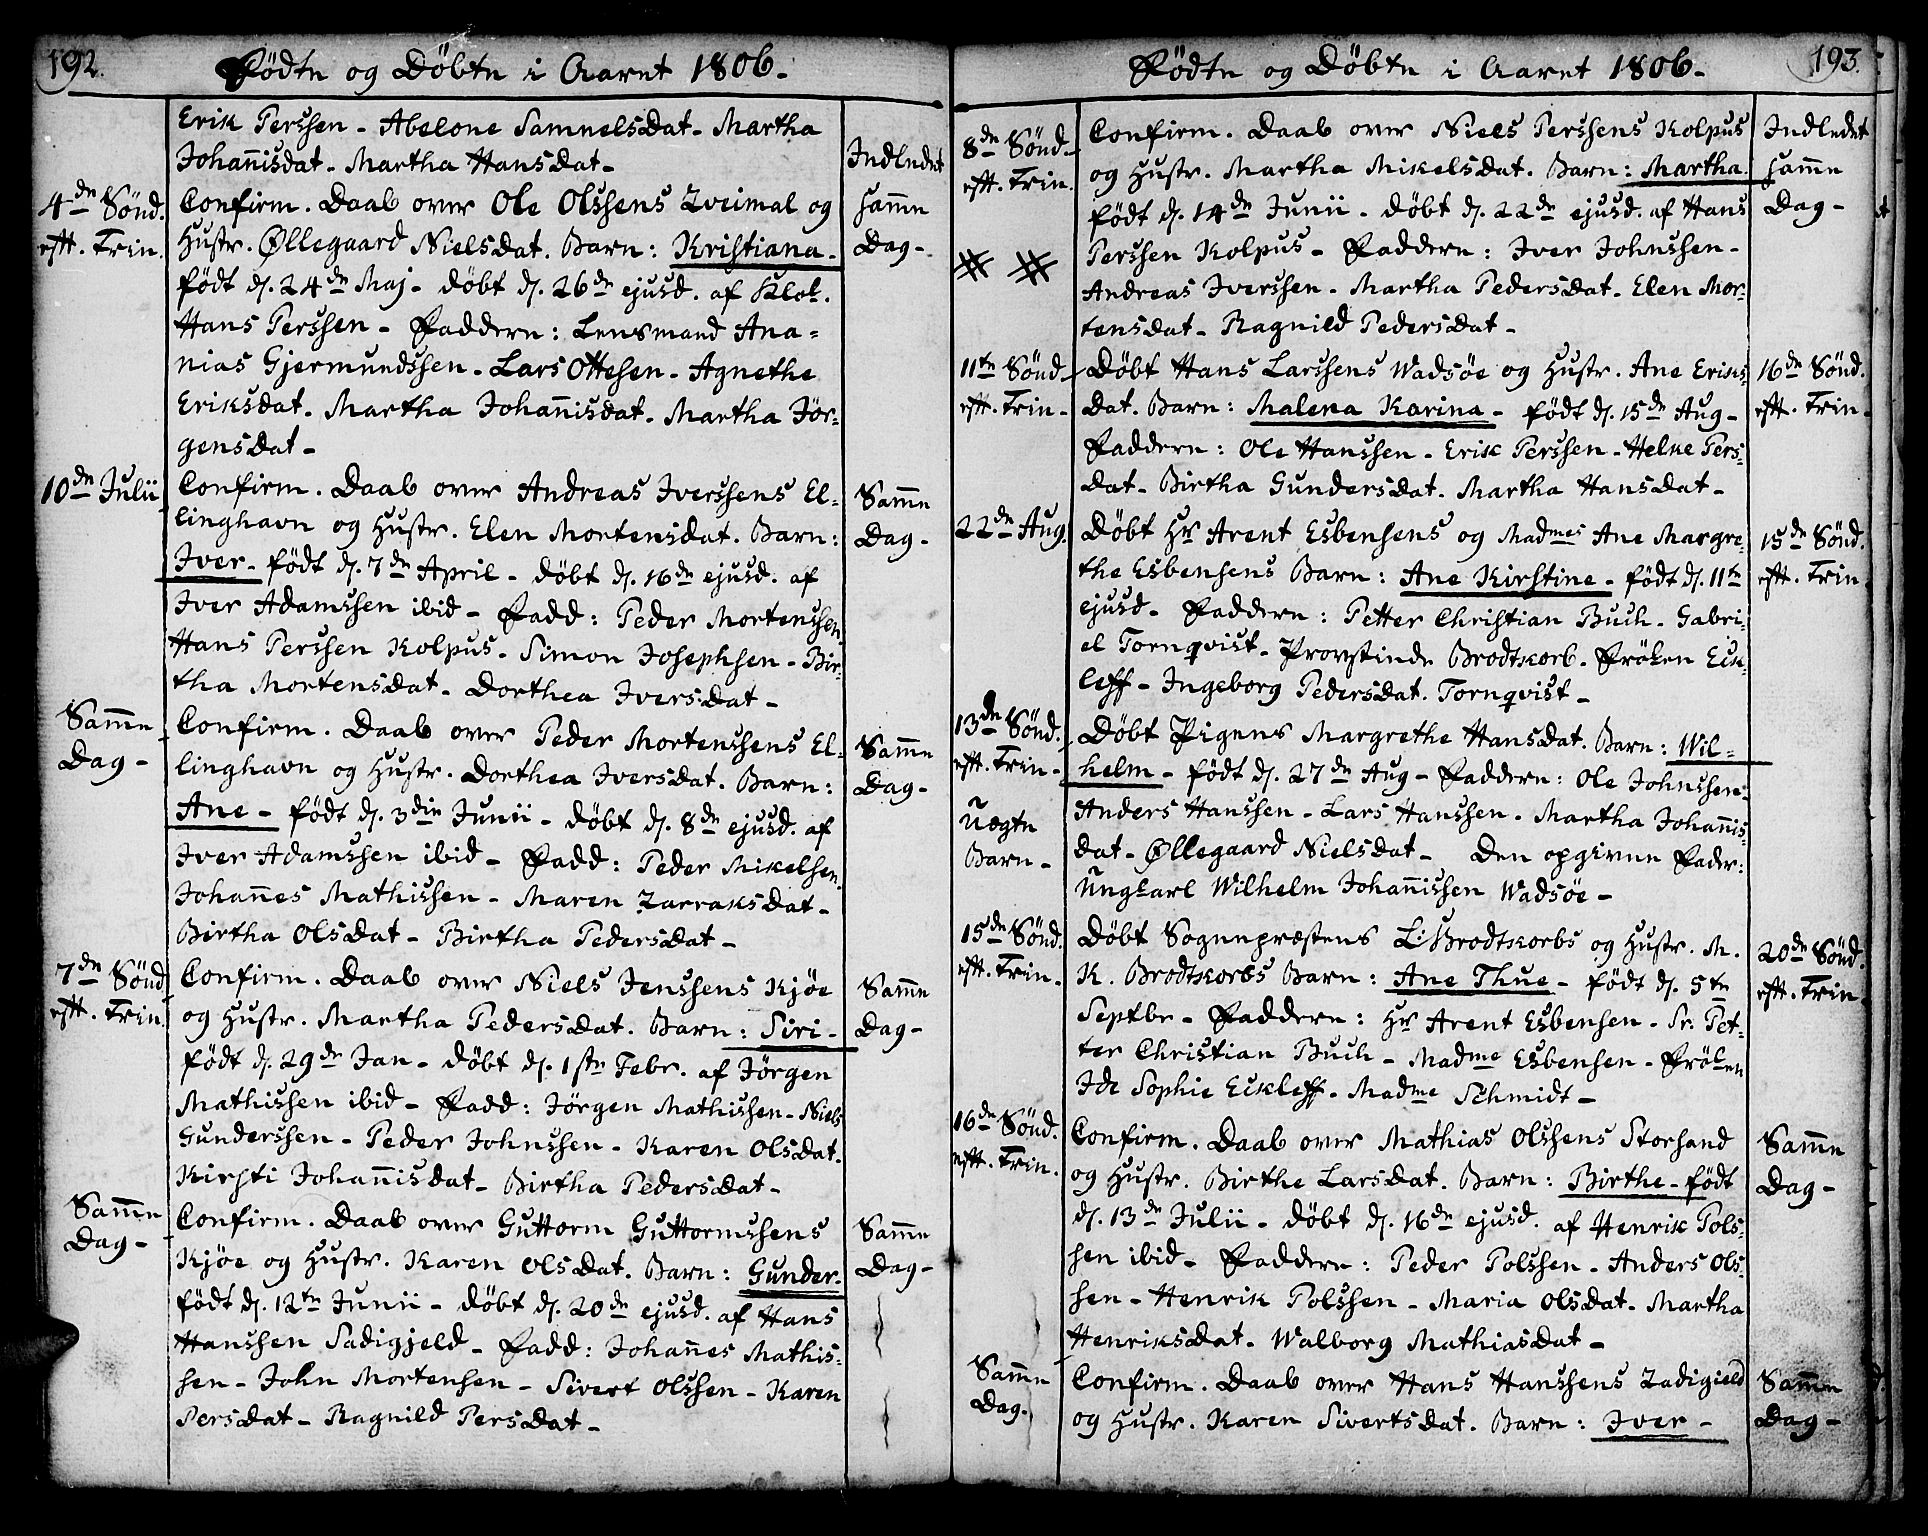 192.
Födte og Döbte i Aaret 1806.
Erik Perssen - Abelone Samuelsdat. Martha
Johañisdat - Martha Hansdat -
4de Sönd. eft. Trin.
Confirm. Daab over Ole Olssens Zveimal og
Hustr. Øllegaard Nielsdat. Barn: Kristiana -
Indledet samme Dag -
födt d. 24de Maj - döbt d. 26de ejusd. af Klok.
Hans Perssen - Faddere: Lensmand Ana=
nias Gjermundssen - Lars Ottesen - Agnethe
Eriksdat. Martha Johañisdat. Martha Jör=
gensdat -
10de Julii
Confirm. Daab over Andreas Iverssens El=
linghavn og Hustr. Elen Mortensdat. Barn:
Samme Dag -
Iver - födt d. 7de April - döbt d. 16de ejusd. af
Iver Adamssen ibid - Fadd: Peder Mortenssen
Hans Perssen Kolpus - Simon Josephsen - Bir=
tha Mortensdat - Dorthea Iversdat -
Samme Dag -
Confirm. Daab over Peder Mortenssens El=
linghavn og Hustr. Dorthea Iversdat. Barn:
Samme Dag -
Ane - födt d. 3die Junii - döbt d. 8de ejusd. af
Iver Adamssen ibid - Fadd: Peder Mikelsen.
Johañes Mathissen - Maren Zarraksdat -
Birtha Olsdat - Birtha Pedersdat -
7de Sönd eft. Trin.
Confirm. Daab over Niels Jenssens Kjöe
og Hustr. Martha Pedersdat. Barn: Siri -
Samme Dag -
födt d. 29de Jan - döbt d. 1ste Febr. af Jörgen
Mathissen ibid - Fadd: Jörgen Mathissen - Niels
Gunderssen - Peder Johnssen - Karen Olsdat.
Kirsti Johañisdat - Birtha Pedersdat -
Samme Dag -
Confirm. Daab over Guttorm Guttormssens
Kjöe og Hustr. Karen Olsdat. Barn: Gunder -
Samme Dag -
födt d. 12te Junii - döbt d. 20de ejusd. af Hans
Hanssen Sadigjeld - Fadd: Johañes Mathis=
sen - John Mortensen - Sivert Olssen - Karen
Persdat - Ragnild Persdat -
193.
Födte og Döbte i Aaret 1806 -
8de Sönd - eft. Trin.
Confirm. Daab over Niels Perssens Kolpus
og Hustr. Martha Mikelsdat. Barn: Martha
Indledet samme Dag -
födt d. 14de Junii - döbt d. 22de ejusd. af Hans
Perssen Kolpus - Faddere: Iver Johnssen -
Andreas Iverssen - Martha Pedersdat - Elen Mor=
tensdat - Ragnild Pedersdat -
11te Sönd - eft. Trin -
Döbt Hans Larssens Wadsöe og Hustr. Ane Eriks=
dat. Barn: Malena Karina - födt d. 15de Aug -
16de Sönd. eft. Trin -
Faddere: Ole Hanssen - Erik Perssen - Helke Pers=
dat - Birtha Gundersdat. Martha Hansdat -
22de Aug
Döbt Hr Arent Esbensens og Madmes Ane Margre=
the Esbensens Barn: Ane Kirstine - födt d. 11te
15de Sönd. eft. Trin
ejusd - Faddere: Petter Christian Buch - Gabri=
el Tornqvist - Provstinde Brodtkorb - Fröken Eck
leff - Ingeborg Pedersdat. Tornqvist -
13de Sönd. eft. Trin -
Uegte Barn -
Döbt Pigens Margrethe Hansdat. Barn: Wil=
helm - födt d. 27de Aug - Faddere: Ole Johnssen -
Anders Hanssen - Lars Hanssen - Martha Johañis=
dat - Øllegaard Nielsdat - Den opgivne Fader:
Ungkarl Wilhelm Johañissen Wadsöe -
15de Sönd. eft. Trin.
Döbt Sognepræstens L: Brodtkorbs og Hustr. M.
K. Brodtkorbs Barn: Ane Thue - födt d. 5te
20de Sönd. eft. Trin
Septbr - Faddere: Hr Arent Esbensen - Sr: Pet=
ter Christian Buch - Madme Esbensen - Fröken
Ide Sophie Eckleff - Madme Schmidt -
16de Sönd. eft. Trin.
Confirm. Daab over Mathias Olssens Storsand
og Hustr. Birthe Larsdat. Barn: Birthe - födt
Samme Dag -
d. 13de Julii - döbt d. 16de ejusd. af Henrik Pols=
sen ibid - Faddere: Peder Polssen - Anders Ols=
sen - Henrik Polssen - Maria Olsdat. Martha
Henriksdat. Walborg Mathiasdat -
Samme Dag.
Confirm. Daab over Hans Hanssens Zadigield
og Hustr. Karen Sivertsdat. Barn: Iver -
Samme Dag -